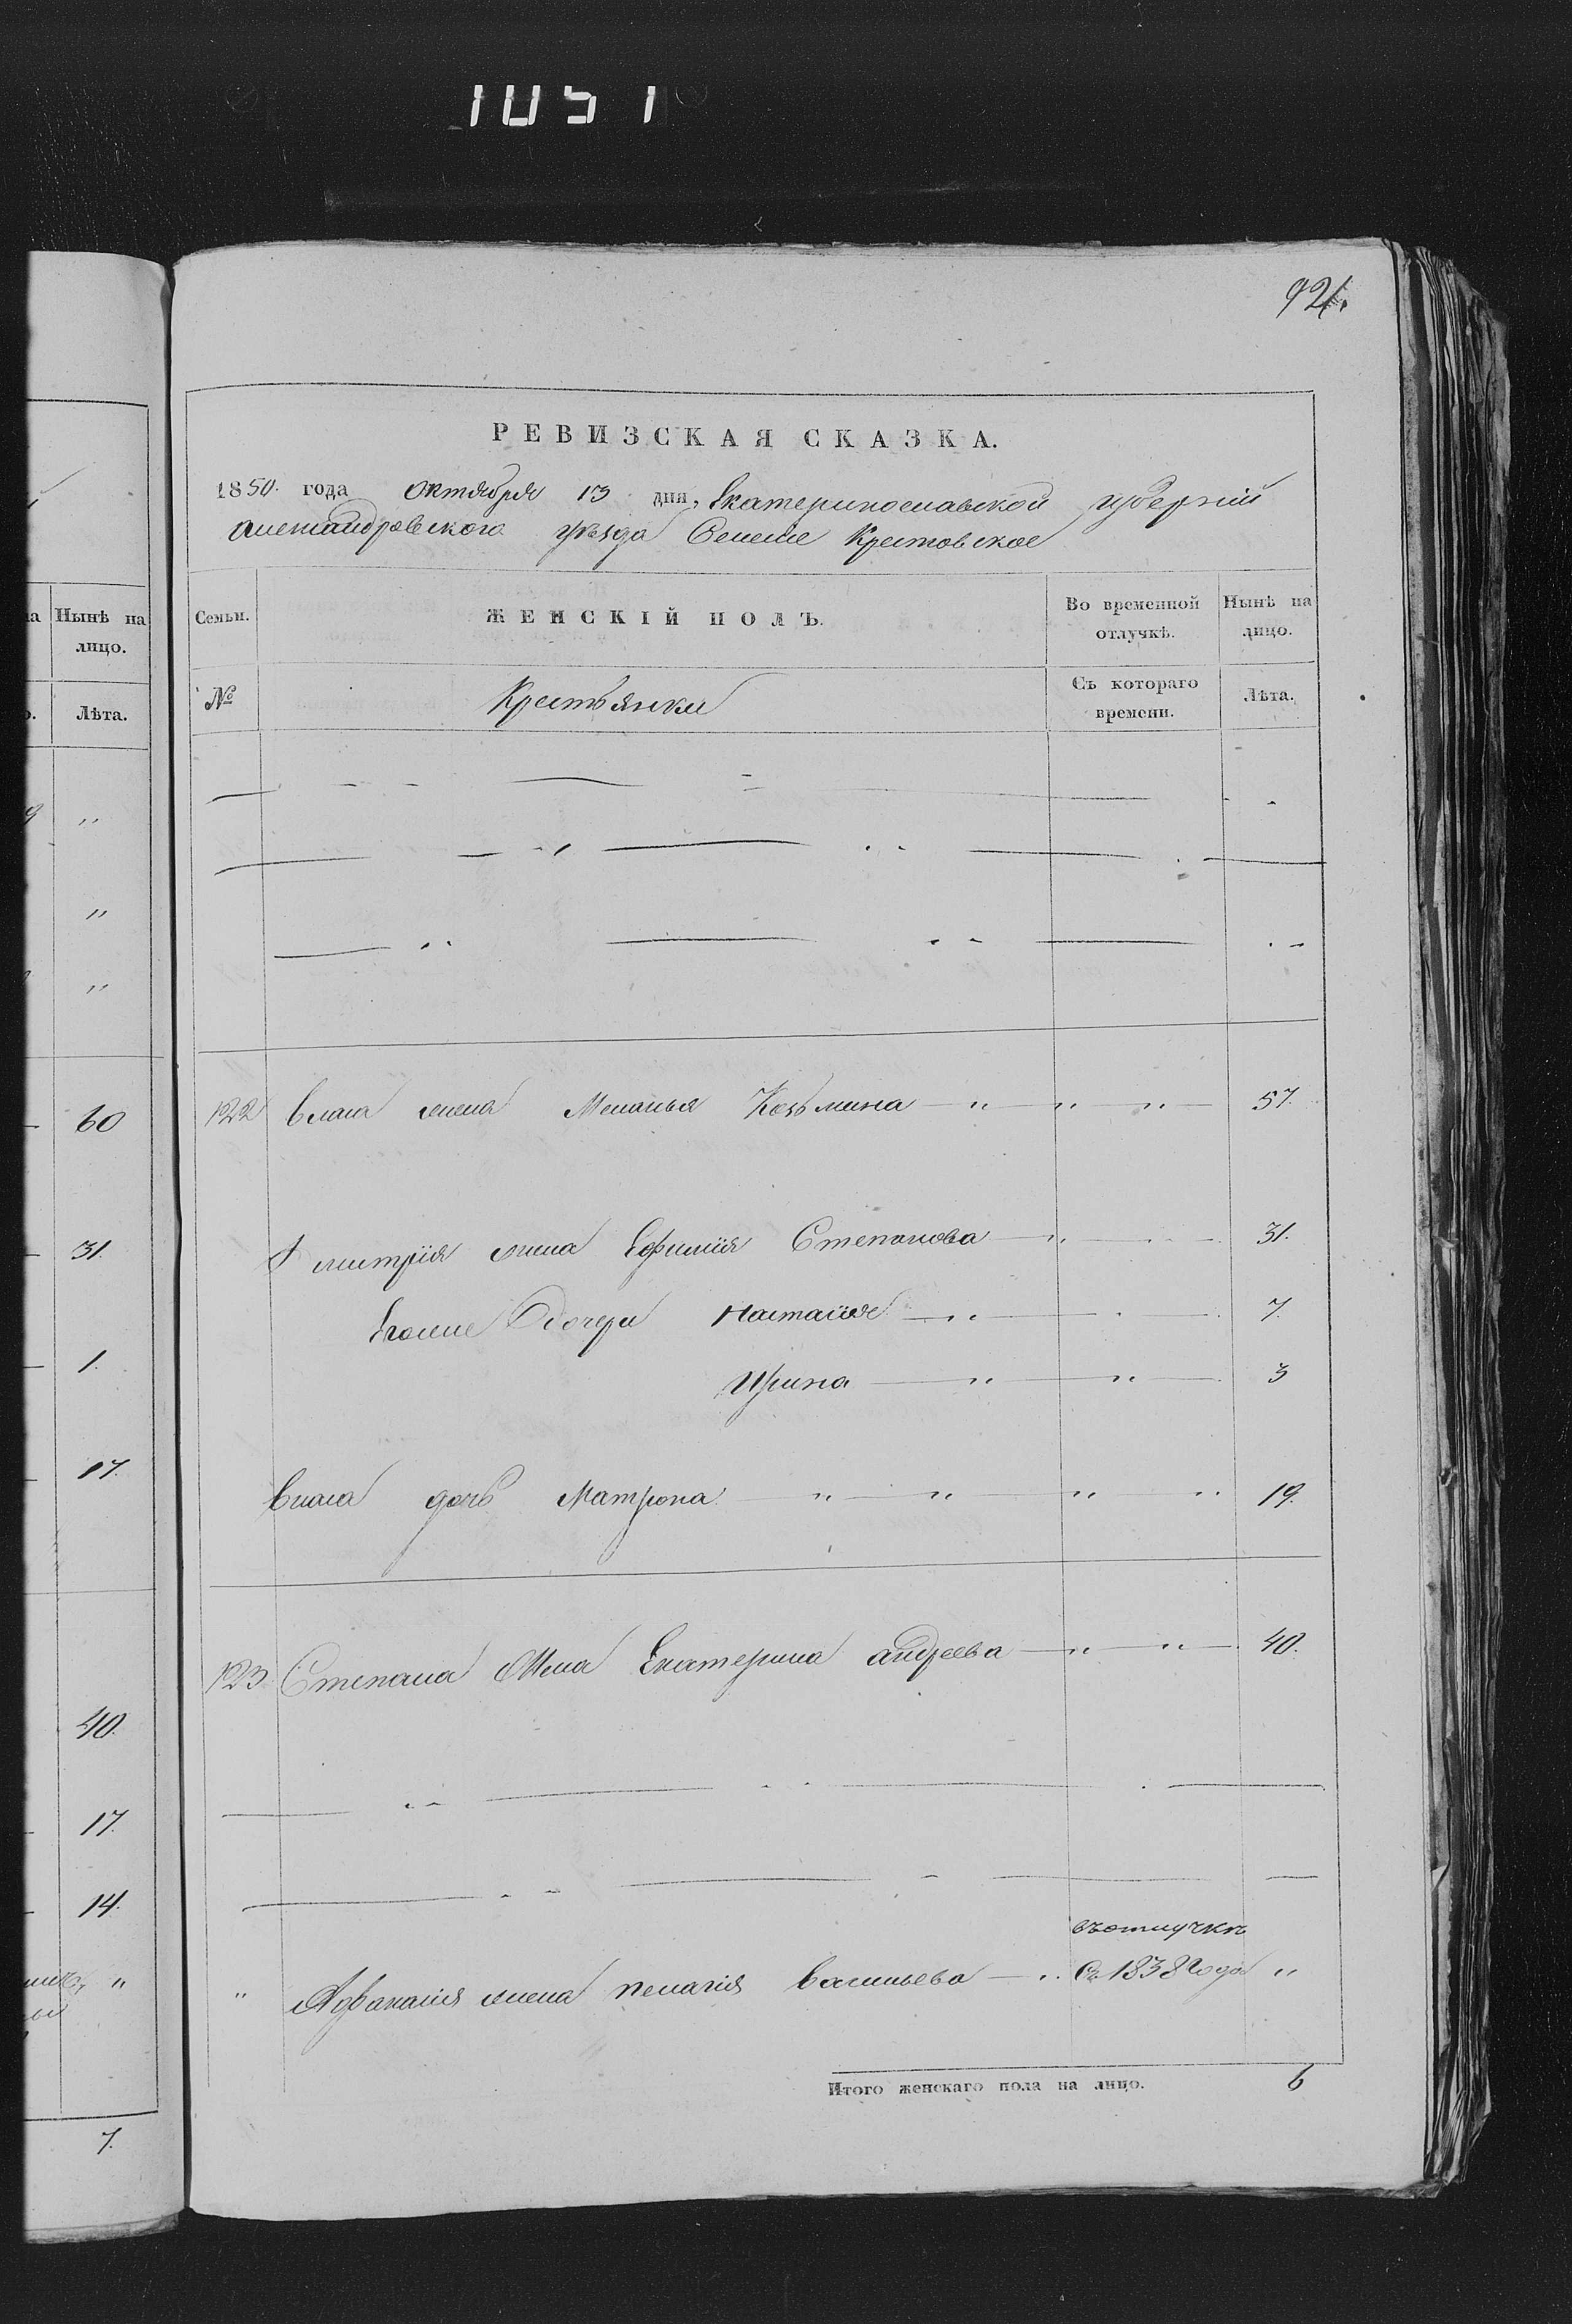 1051
921.
РЕВИЗСКАЯ СКАЗКА.
1850. года октября 13 дня, Екатеринославской губерніи
александровского уѣзда Селение Крестовское
на Нынѣ на лицо.
Лѣта.
Семьи.
ЖЕНСКІЙ ПОЛЪ.
Во временной отлучкѣ.
Нынѣ на лицо.
№
Крестьянки
Съ котораго времени.
Лѣта.
"
"
"
60
31.
1.
17.
40.
17.
14.
"
7.
122 Власа жена Меланья Козьмина — " — " — " — 57.
Дмитрія жена Ефимія Степанова — " 31.
Егоже Дочери Настасія — " — 7.
Ирина — " — " — 3
Власа дочь Матрона " — " " " 19.
123. Степана Жена Екатерина андреева — " — " — 40.
въотлучкѣ
" Афанасія жена пелагія васильева — " Съ 1838 года "
Итого женскаго пола на лицо. 6